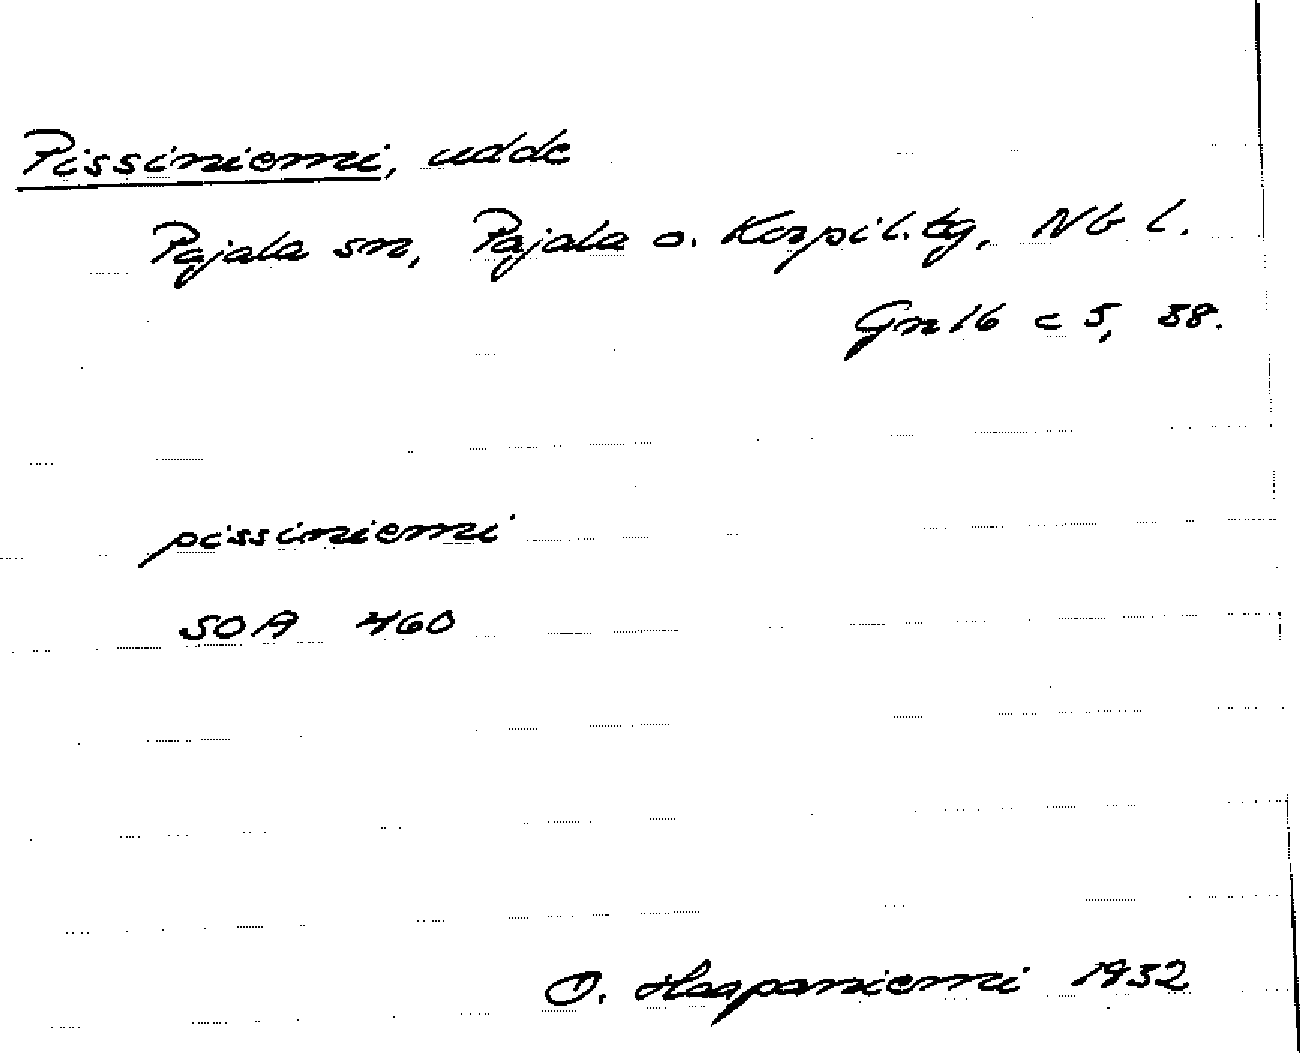 Pissiniemi, udde
Pajala sn, Pajala o. Korpil. tg, Nb l.
Gn 16 c 5, 58.
pissiniemi
SOA 460
O. Haapaniemi 1932